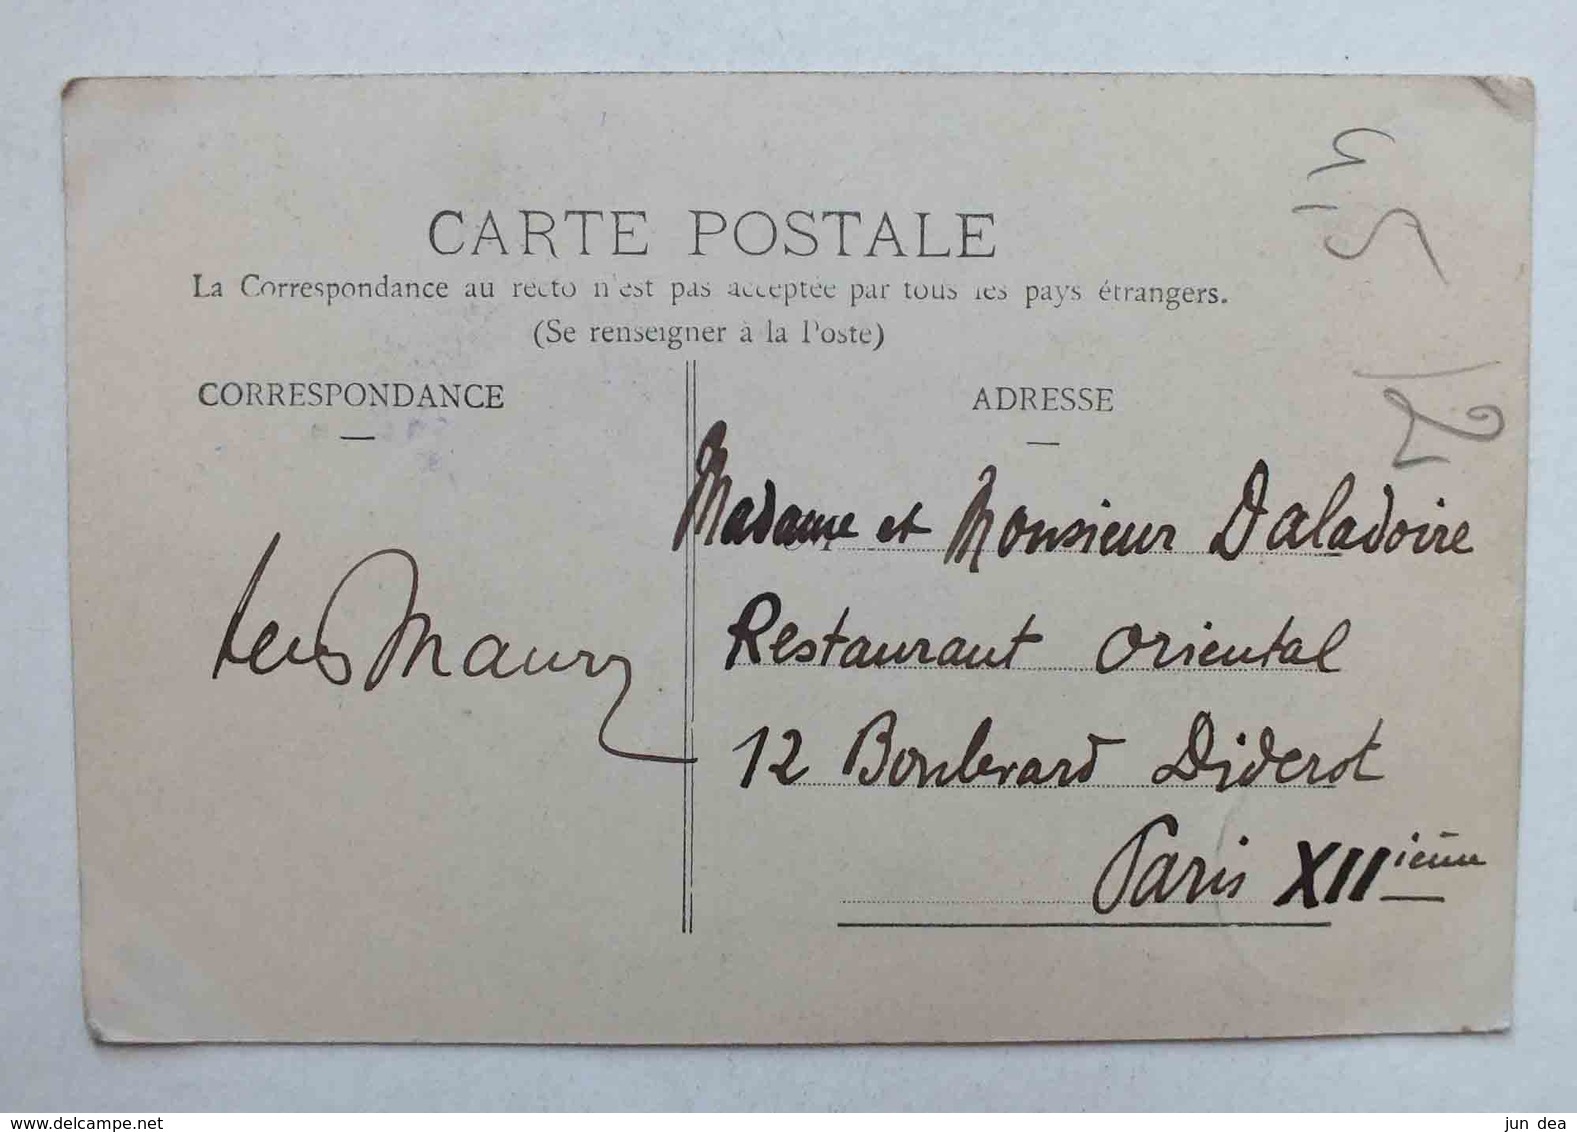 CARTE POSTALE
La Correspondance au recto n'est pas acceptée par tous les pays étrangers.
(Se renseigner à la Poste)
CORRESPONDANCE
Maury
ADRESSE
Madame et Monsieur Daladoire
Restaurant Oriental
12 Boulevard Diderot
Paris XIIième
12
jun dea